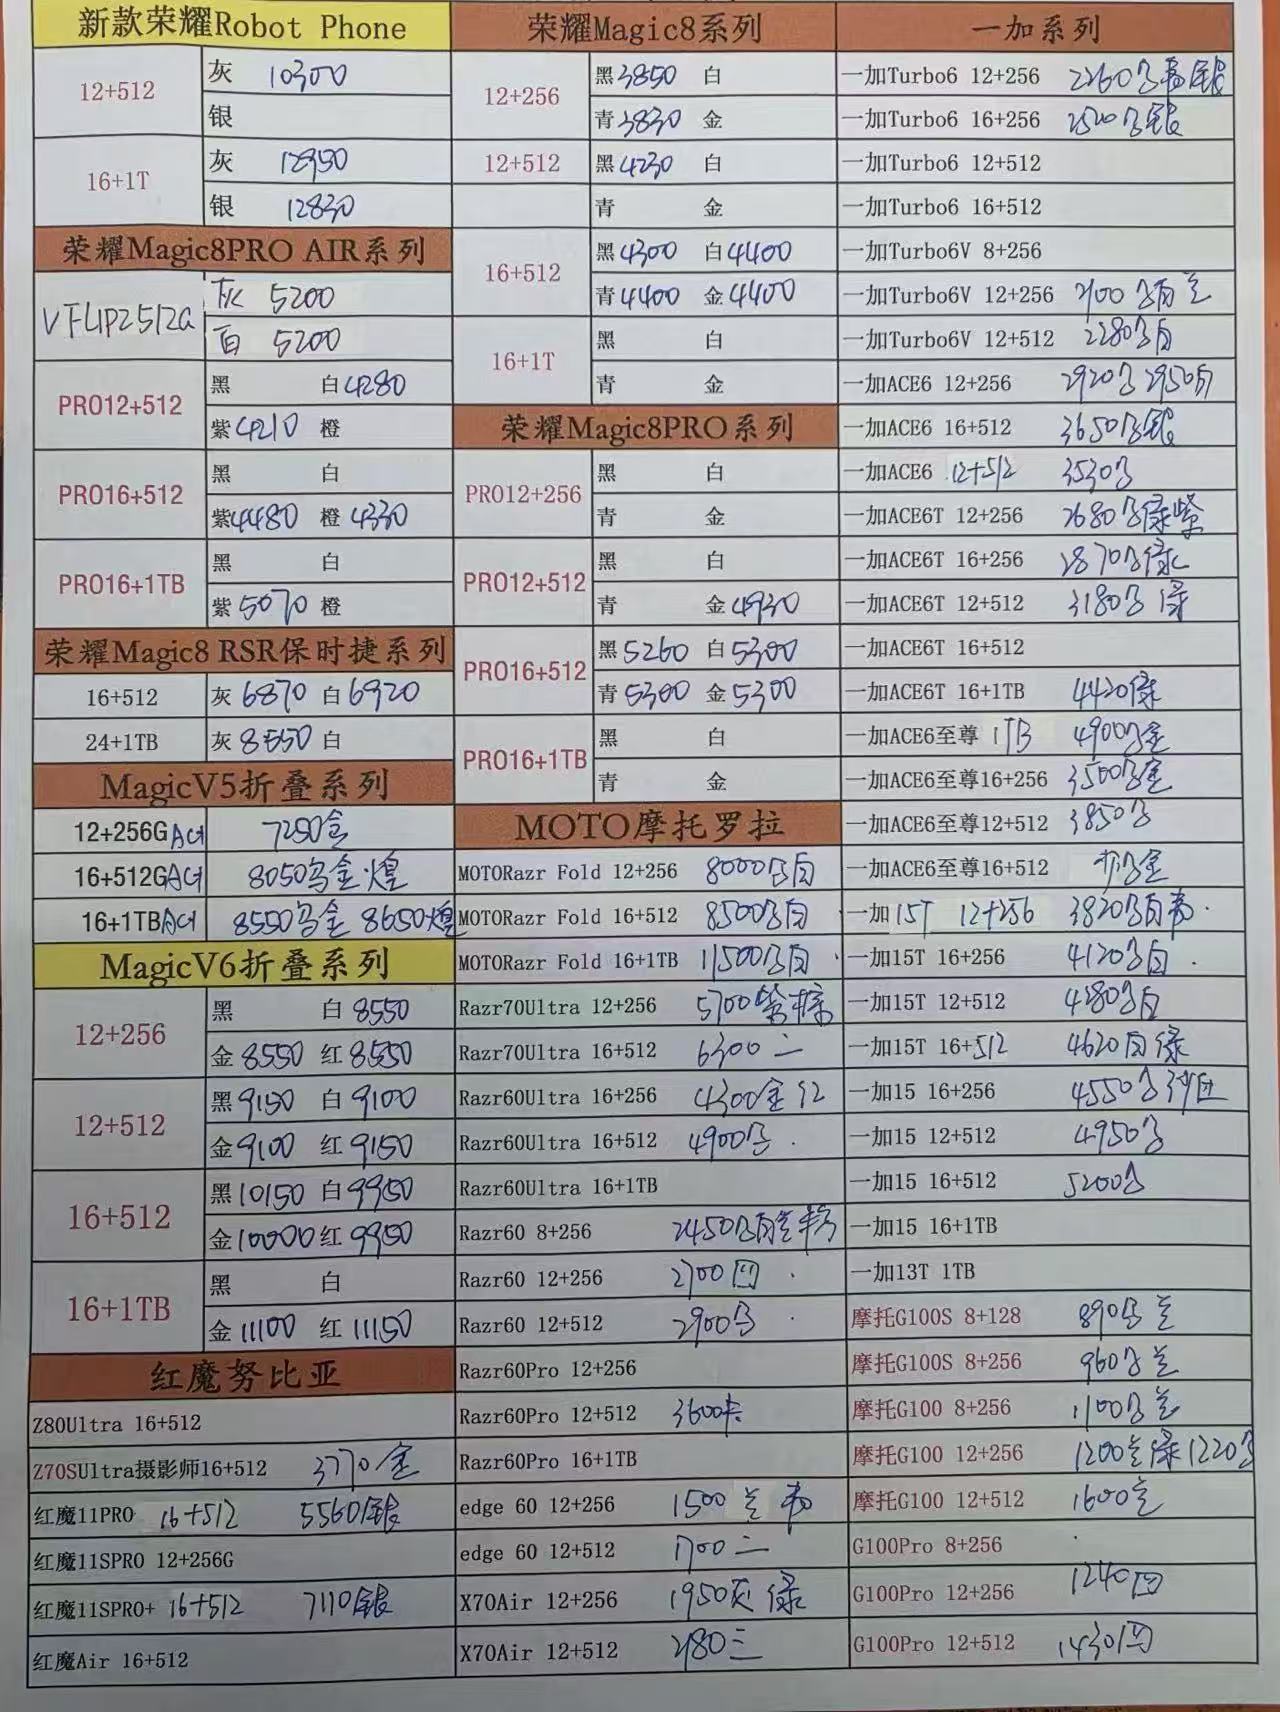 新款荣耀Robot Phone
12+512
灰 10300
银
16+1T
灰 12950
银 12830
荣耀Magic8PRO AIR系列
灰 5200
百 5200
PRO12+512
黑 白4280
紫4210 橙
PRO16+512
黑 白
紫4480 橙 4330
PRO16+1TB
黑 白
紫5070 橙
荣耀Magic8 RSR保时捷系列
16+512 灰 6870 白 6920
24+1TB 灰 8550 白
MagicV5折叠系列
12+256G 7250金
16+512G 8050乌金.煌
16+1TB 8550乌金 8650煌
MagicV6折叠系列
12+256
黑 白 8550
金 8550 红 8550
12+512
黑 9150 白 9100
金 9100 红 9150
16+512
黑 10150 白 9950
金 10000 红 9950
16+1TB
黑 白
金 11100 红 11150
红魔努比亚
Z80Ultra 16+512
Z70SUltra摄影师16+512 3770金
红魔11PRO 16+512 5560银
红魔11SPRO 12+256G
红魔11SPRO+ 16+512 7110银
红魔Air 16+512
荣耀Magic8系列
12+256
黑3850 白
青3830 金
12+512 黑4230 白
青 金
16+512
黑4300 白4400
青4400 金4400
16+1T
黑 白
青 金
荣耀Magic8PRO系列
PRO12+256
黑 白
青 金
PRO12+512
黑 白
青 金4930
PRO16+512
黑5260 白5300
青5300 金5300
PRO16+1TB
黑 白
青 金
MOTO摩托罗拉
MOTORazr Fold 12+256 8000白
MOTORazr Fold 16+512 8500白
MOTORazr Fold 16+1TB 11500白
Razr70Ultra 12+256 5700
Razr70Ultra 16+512 6300 二
Razr60Ultra 16+256 4300金 红
Razr60Ultra 16+512 4900
Razr60Ultra 16+1TB
Razr60 8+256 2450
Razr60 12+256 2700
Razr60 12+512 2900
Razr60Pro 12+256
Razr60Pro 12+512 3600卡
Razr60Pro 16+1TB
edge 60 12+256 1500 兰
edge 60 12+512 1700 二
X70Air 12+256 1950灰 绿
X70Air 12+512 2180三
一加系列
一加Turbo6 12+256 2260 银
一加Turbo6 16+256 2520 银
一加Turbo6 12+512
一加Turbo6 16+512
一加Turbo6V 8+256
一加Turbo6V 12+256 2100 兰
一加Turbo6V 12+512 2280白
一加ACE6 12+256 2920 2950白
一加ACE6 16+512 3650银
一加ACE6 12+512 3530
一加ACE6T 12+256 2680绿紫
一加ACE6T 16+256 2870绿
一加ACE6T 12+512 3180 绿
一加ACE6T 16+512
一加ACE6T 16+1TB 4420绿
一加ACE6至尊 1TB 4900金
一加ACE6至尊16+256 3500金
一加ACE6至尊12+512 3850
一加ACE6至尊16+512 金
一加 15T 12+256 3820白
一加15T 16+256 4120白
一加15T 12+512 4280白
一加15T 16+512 4620白绿
一加15 16+256 4550
一加15 12+512 4950
一加15 16+512 5200
一加15 16+1TB
一加13T 1TB
摩托G100S 8+128 890 兰
摩托G100S 8+256 960 兰
摩托G100 8+256 1100 兰
摩托G100 12+256 1200兰绿1220
摩托G100 12+512 1600兰
G100Pro 8+256
G100Pro 12+256 1240
G100Pro 12+512 1430